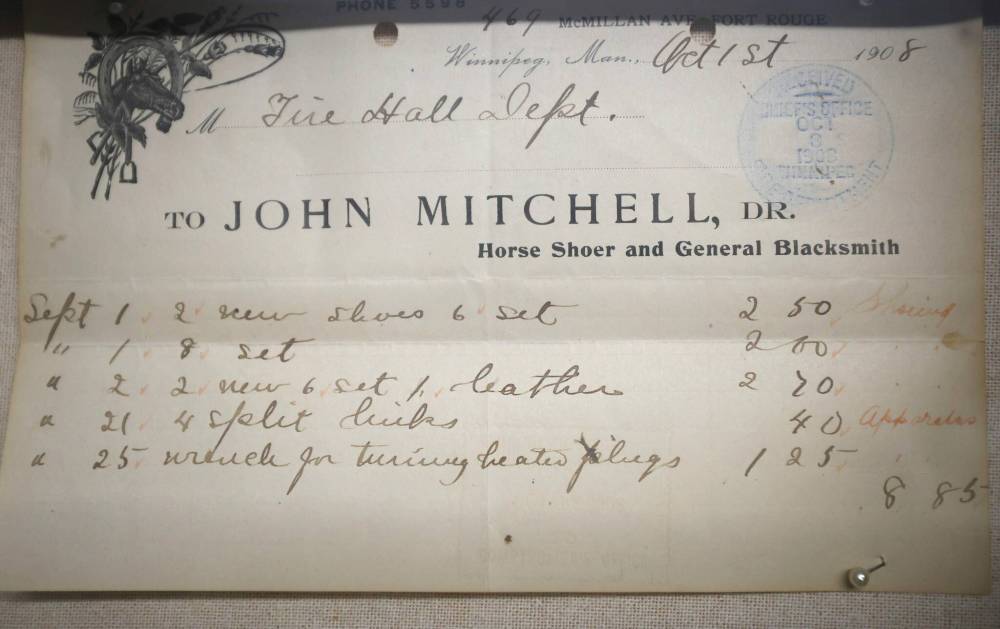 PHONE 5598
469 McMILLAN AVE. FORT ROUGE
Winnipeg, Man., Oct 1st 1908
M Fire Hall Dept.
RECEIVED
CHIEF'S OFFICE
OCT
3
1908
WINNIPEG
TO JOHN MITCHELL, DR.
Horse Shoer and General Blacksmith
Sept 1 2 new shoes 6 set 2 50 Shoeing
" 1 8 set 2 00
" 2 2 new 6 set 1 leather 2 70
" 21 4 split links 40 Apparatus
" 25 wrench for turning heater plugs 1 25
8 85